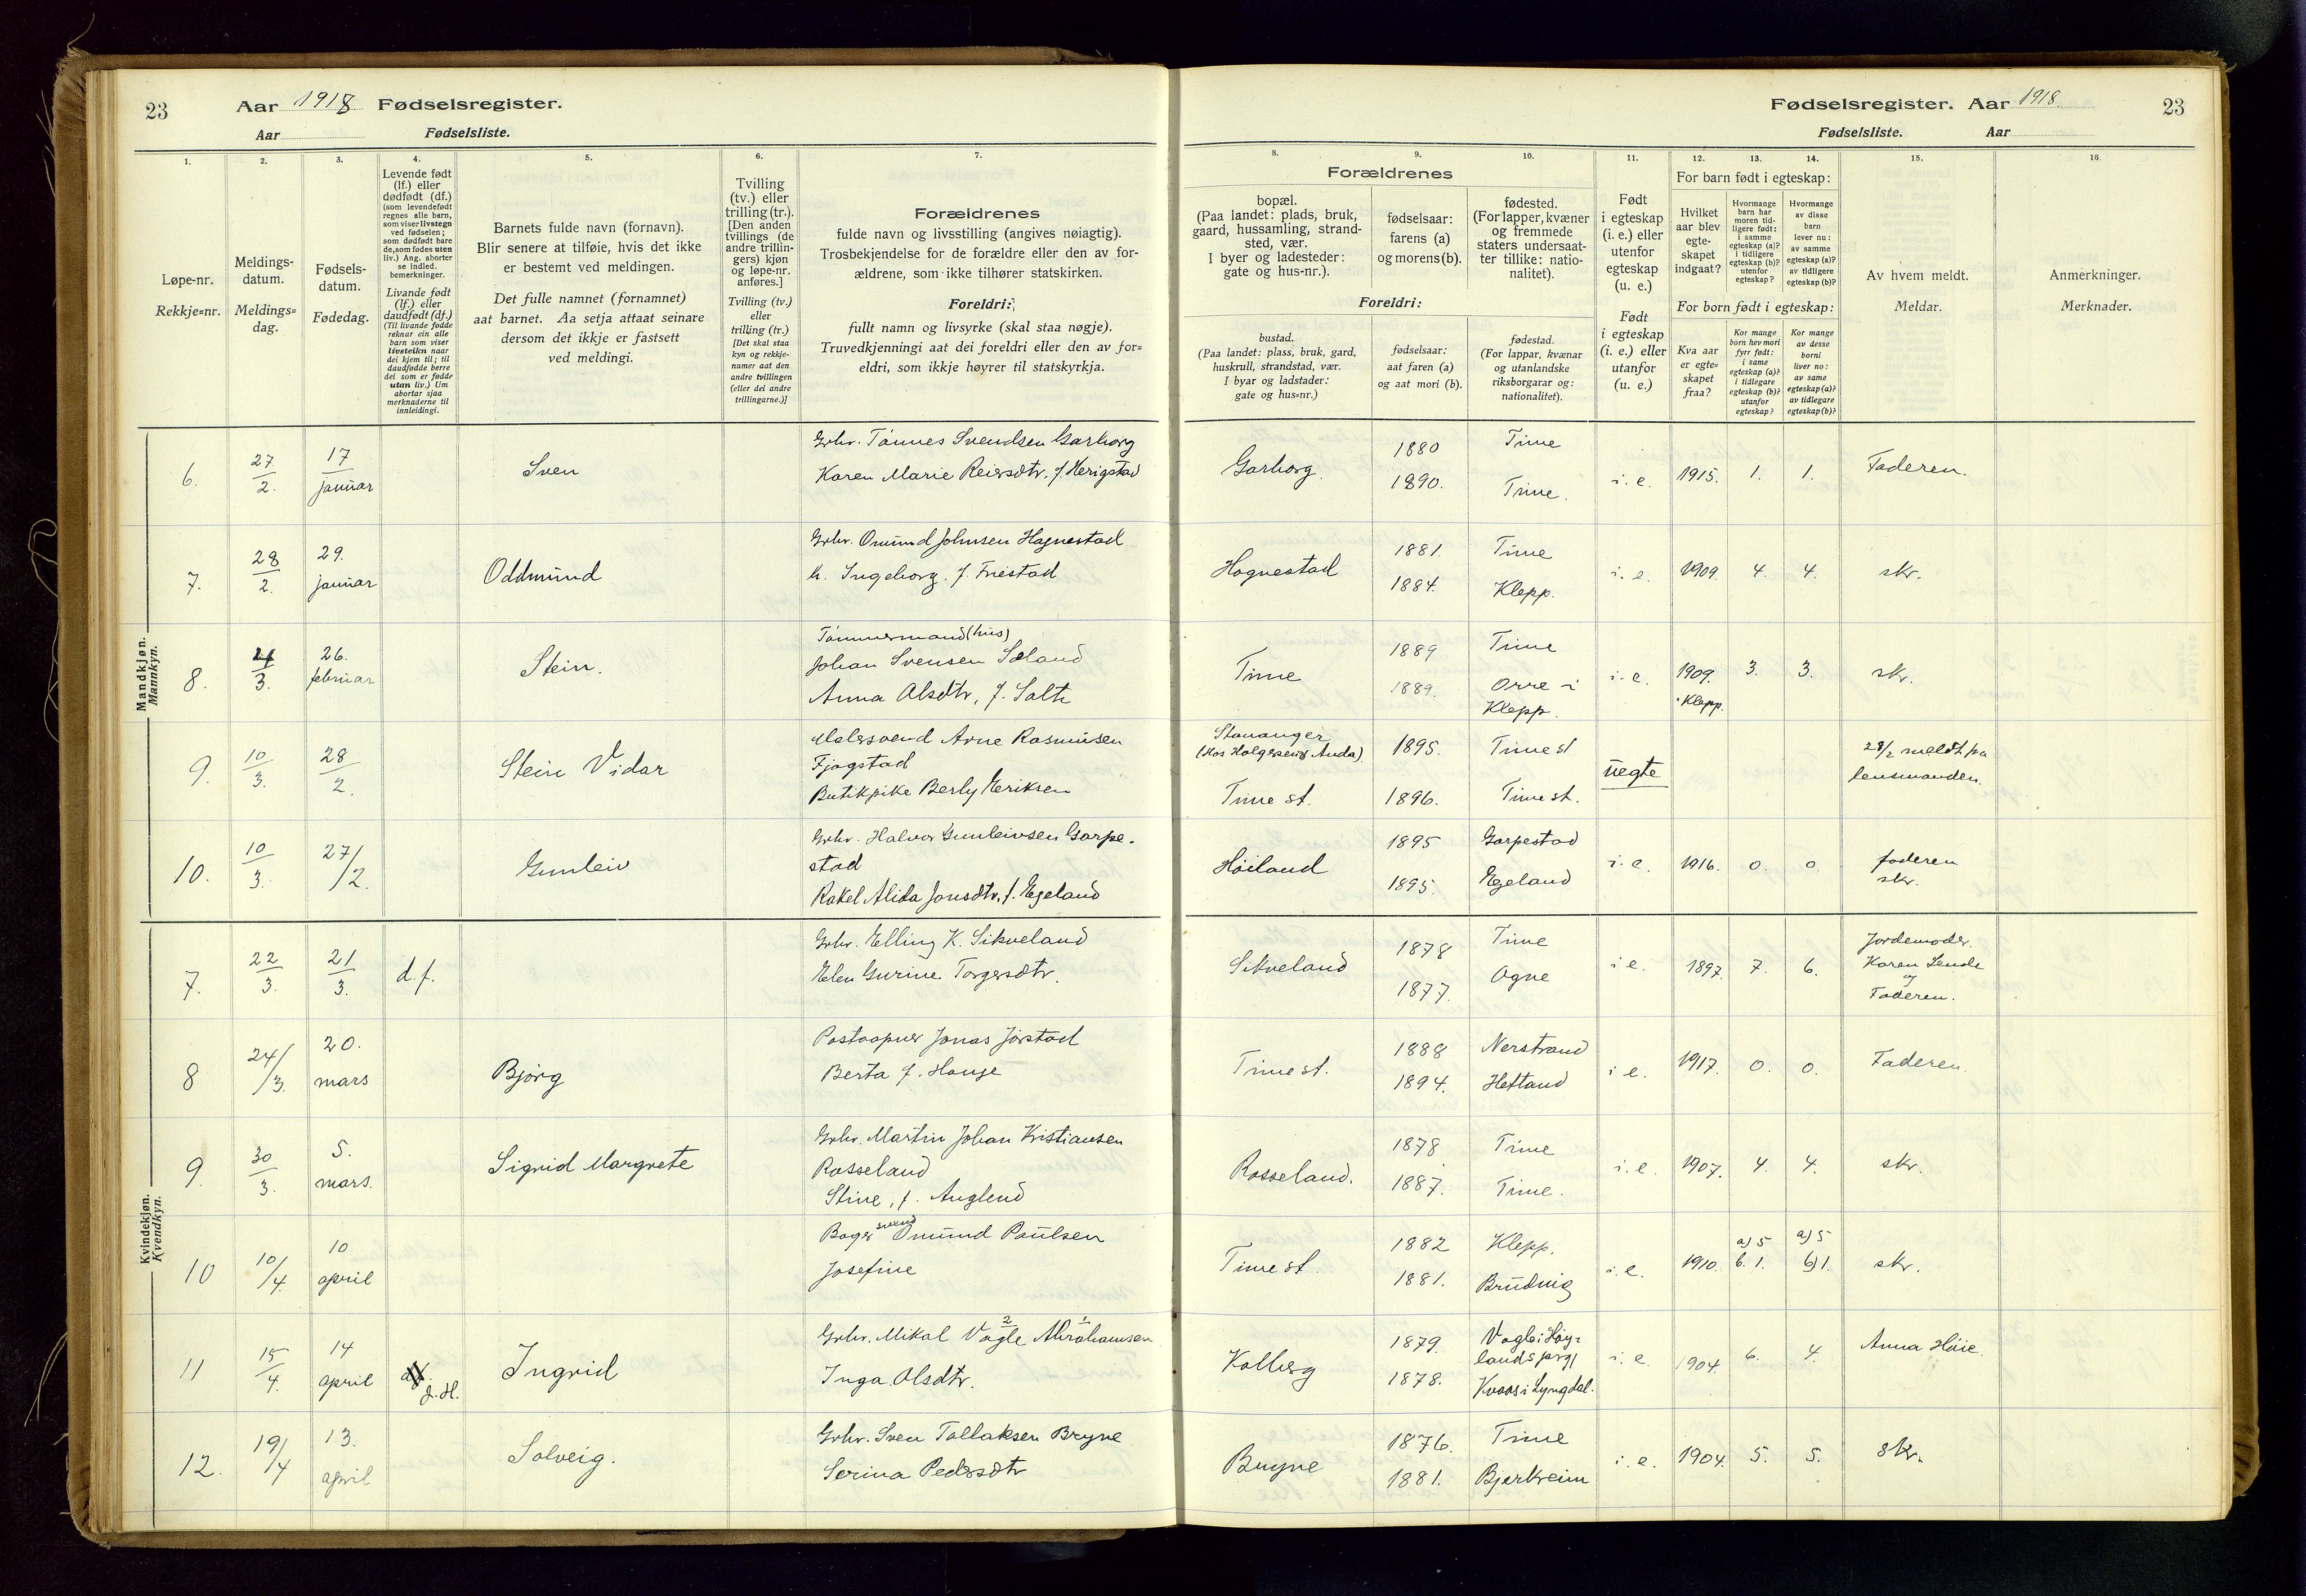 23
Aar 1918 Fødselsregister.
Aar
Fødselsliste.
1.
2.
3.
4.
5.
6.
7.
Løpe-nr.
Rekkje=nr.
Meldings-
datum.
Meldings=
dag.
Fødsels-
datum.
Fødedag.
Levende født
(lf.) eller
dødfødt (df.)
(som levendefødt
regnes alle barn,
som viser livstegn
ved fødselen;
som dødfødt bare
de, som fødes uten
liv.) Ang. aborter
se indled.
bemerkninger.
Livande født
(lf.) eller
daudfødt (df.)
(Til livande fødde
reknar ein alle
barn som viser
livsteikn naar
dei kjem til; til
daudfødde berre
dei som er fødde
utan liv.) Um
abortar sjaa
merknaderne til
innleidingi.
Barnets fulde navn (fornavn).
Blir senere at tilføie, hvis det ikke
er bestemt ved meldingen.
Det fulle namnet (fornamnet)
aat barnet. Aa setja attaat seinare
dersom det ikkje er fastsett
ved meldingi.
Tvilling
(tv.) eller
trilling (tr.).
[Den anden
tvillings (de
andre trillin-
gers) kjøn
og løpe-nr.
anføres.]
Tvilling (tv.)
eller
trilling (tr.)
[Det skal staa
kyn og rekkje-
numer aat den
andre tvillingen
(eller dei andre
trillingarne.)]
Forældrenes
fulde navn og livsstilling (angives nøiagtig).
Trosbekjendelse for de forældre eller den av for-
ældrene, som ikke tilhører statskirken.
Foreldri:
fullt namn og livsyrke (skal staa nøgje).
Truvedkjenningi aat dei foreldri eller den av for=
eldri, som ikkje høyrer til statskyrkja.
Mandkjøn.
Mannkyn.
6.
27/2.
17
januar
Sven
Grbr. Tønnes Svendsen Garborg
Karen Marie Reiersdtr. f. Herigstad
7.
28/2.
29.
januar
Oddmund
Grbr. Omund Johnsen Hognestad
h. Ingeborg. f. Friestad
8.
/3.
26.
februar
Stein.
Tømmermand (hus)
Johan Svensen Sæland
Anna Olsdtr, f. Salte
9.
10/3.
28/2.
Stein Vidar
Malersvend Arne Rasmusen
Fjogstad
Butikpike Berly Eriksen
10.
10/3.
27/2.
Gunleiv
Grbr. Halvor Gunleivsen Garpe-
stad
Rakel Alida Jonsdtr. f. Egeland
Kvindekjøn.
Kvendkyn.
7.
22/3.
21/3.
d.f.
Grbr. Elling K. Sikveland
Elen Gurine Torgersdtr.
8
24/3.
20.
mars
Bjørg
Postaapner Jonas Jørstad
Berta f. Hauge
9.
30/3.
5.
mars.
Sigrid Margrete
Grbr. Martin Johan Kristiansen
Rosseland
Stine, f. Anglend
10
10/4.
10
april
Bager svend Omund Paulsen
Josefine
11
15/4.
14
april
Ingrid
2 1
Grbr. Mikal Vagle Abrahamsen
Inga Olsdtr.
12.
19/4
13.
april
Solveig.
Grbr. Sven Tollaksen Bryne
Serina Pedersdtr
Fødselsregister. Aar 1918.
23
Fødselsliste.
Aar
8.
9.
10.
11.
12.
13.
14.
15.
16.
Forældrenes
bopæl.
(Paa landet: plads, bruk,
gaard, hussamling, strand-
sted, vær.
I byer og ladesteder:
gate og hus-nr.).
fødselsaar:
farens (a)
og morens (b).
fødested.
(For lapper, kvæner
og fremmede
staters undersaat-
ter tillike: natio-
nalitet).
Foreldri:
bustad.
(Paa landet: plass, bruk, gard,
huskrull, strandstad, vær.
I byar og ladstader:
gate og hus=nr.)
fødselsaar:
aat faren (a)
og aat mori (b).
fødestad.
(For lappar, kvænar
og utanlandske
riksborgarar og:
nationalitet).
Født
i egteskap
(i. e.) eller
utenfor
egteskap
(u. e.)
Født
i egteskap
(i. e.) eller
utanfor
(u. e.)
For barn født i egteskap:
Hvilket
aar blev
egte-
skapet
indgaat?
Hvormange
barn har
moren tid-
ligere født:
i samme
egteskap (a)?
i tidligere
egteskap (b)?
utenfor
egteskap?
Hvormange
av disse
barn
lever nu:
av samme
egteskap (a)?
av tidligere
egteskap (b)?
For born født i egteskap:
Kva aar
er egte=
skapet
fraa?
Kor mange
born hev mori
fyrr født:
i same
egteskap (a)?
i tidlegare
egteskap (b)?
utanfor
egteskap?
Kor mange
av desse
borni
liver no:
av same
egteskap (a)?
av tidlegare
egteskap (b)?
Av hvem meldt.
Meldar.
Anmerkninger.
Merknader.
Garborg.
1880
1890.
Time
Time.
i. e.
1915.
1.
1.
Faderen.
Hognestad
1881.
1884.
Time
Klepp.
i. e.
1909.
4.
4.
skr.
Time
1889
1889.
Time
Orre i
Klepp.
i. e.
1909.
Klepp.
3.
3.
skr.
Stavanger
(Hos Holgersen & Anda)
Time st.
1895.
1896.
Time st
Time st.
uegte
28/2 meldt pa
lensmanden.
Høiland
1895
1895.
Garpestad
Egeland
i. e.
1916.
0.
0
faderen
skr.
Sikveland
1878
1877.
Time
Ogne
i e.
1897.
7.
6.
Jordemoder.
Karen Lende
og
Faderen.
Time st.
1888
1894.
Nerstrand
Hetland
i e.
1917.
0.
0.
Faderen.
Rosseland.
1878
1887.
Time
Time.
i. e.
1907.
4.
4.
skr.
Time st.
1882
1881.
Klepp.
i. e.
1910.
a) 5
b. 1.
a) 5
b) 1.
skr.
Kolberg
1879.
1878.
Vagle i Høy=
lands prgj
Kvaas i Lyngdal.
i. e.
1904.
6.
4.
Anna Høie.
Bryne
1876.
1881.
Time
Bjerkreim
i. e.
1904.
5.
5.
skr.